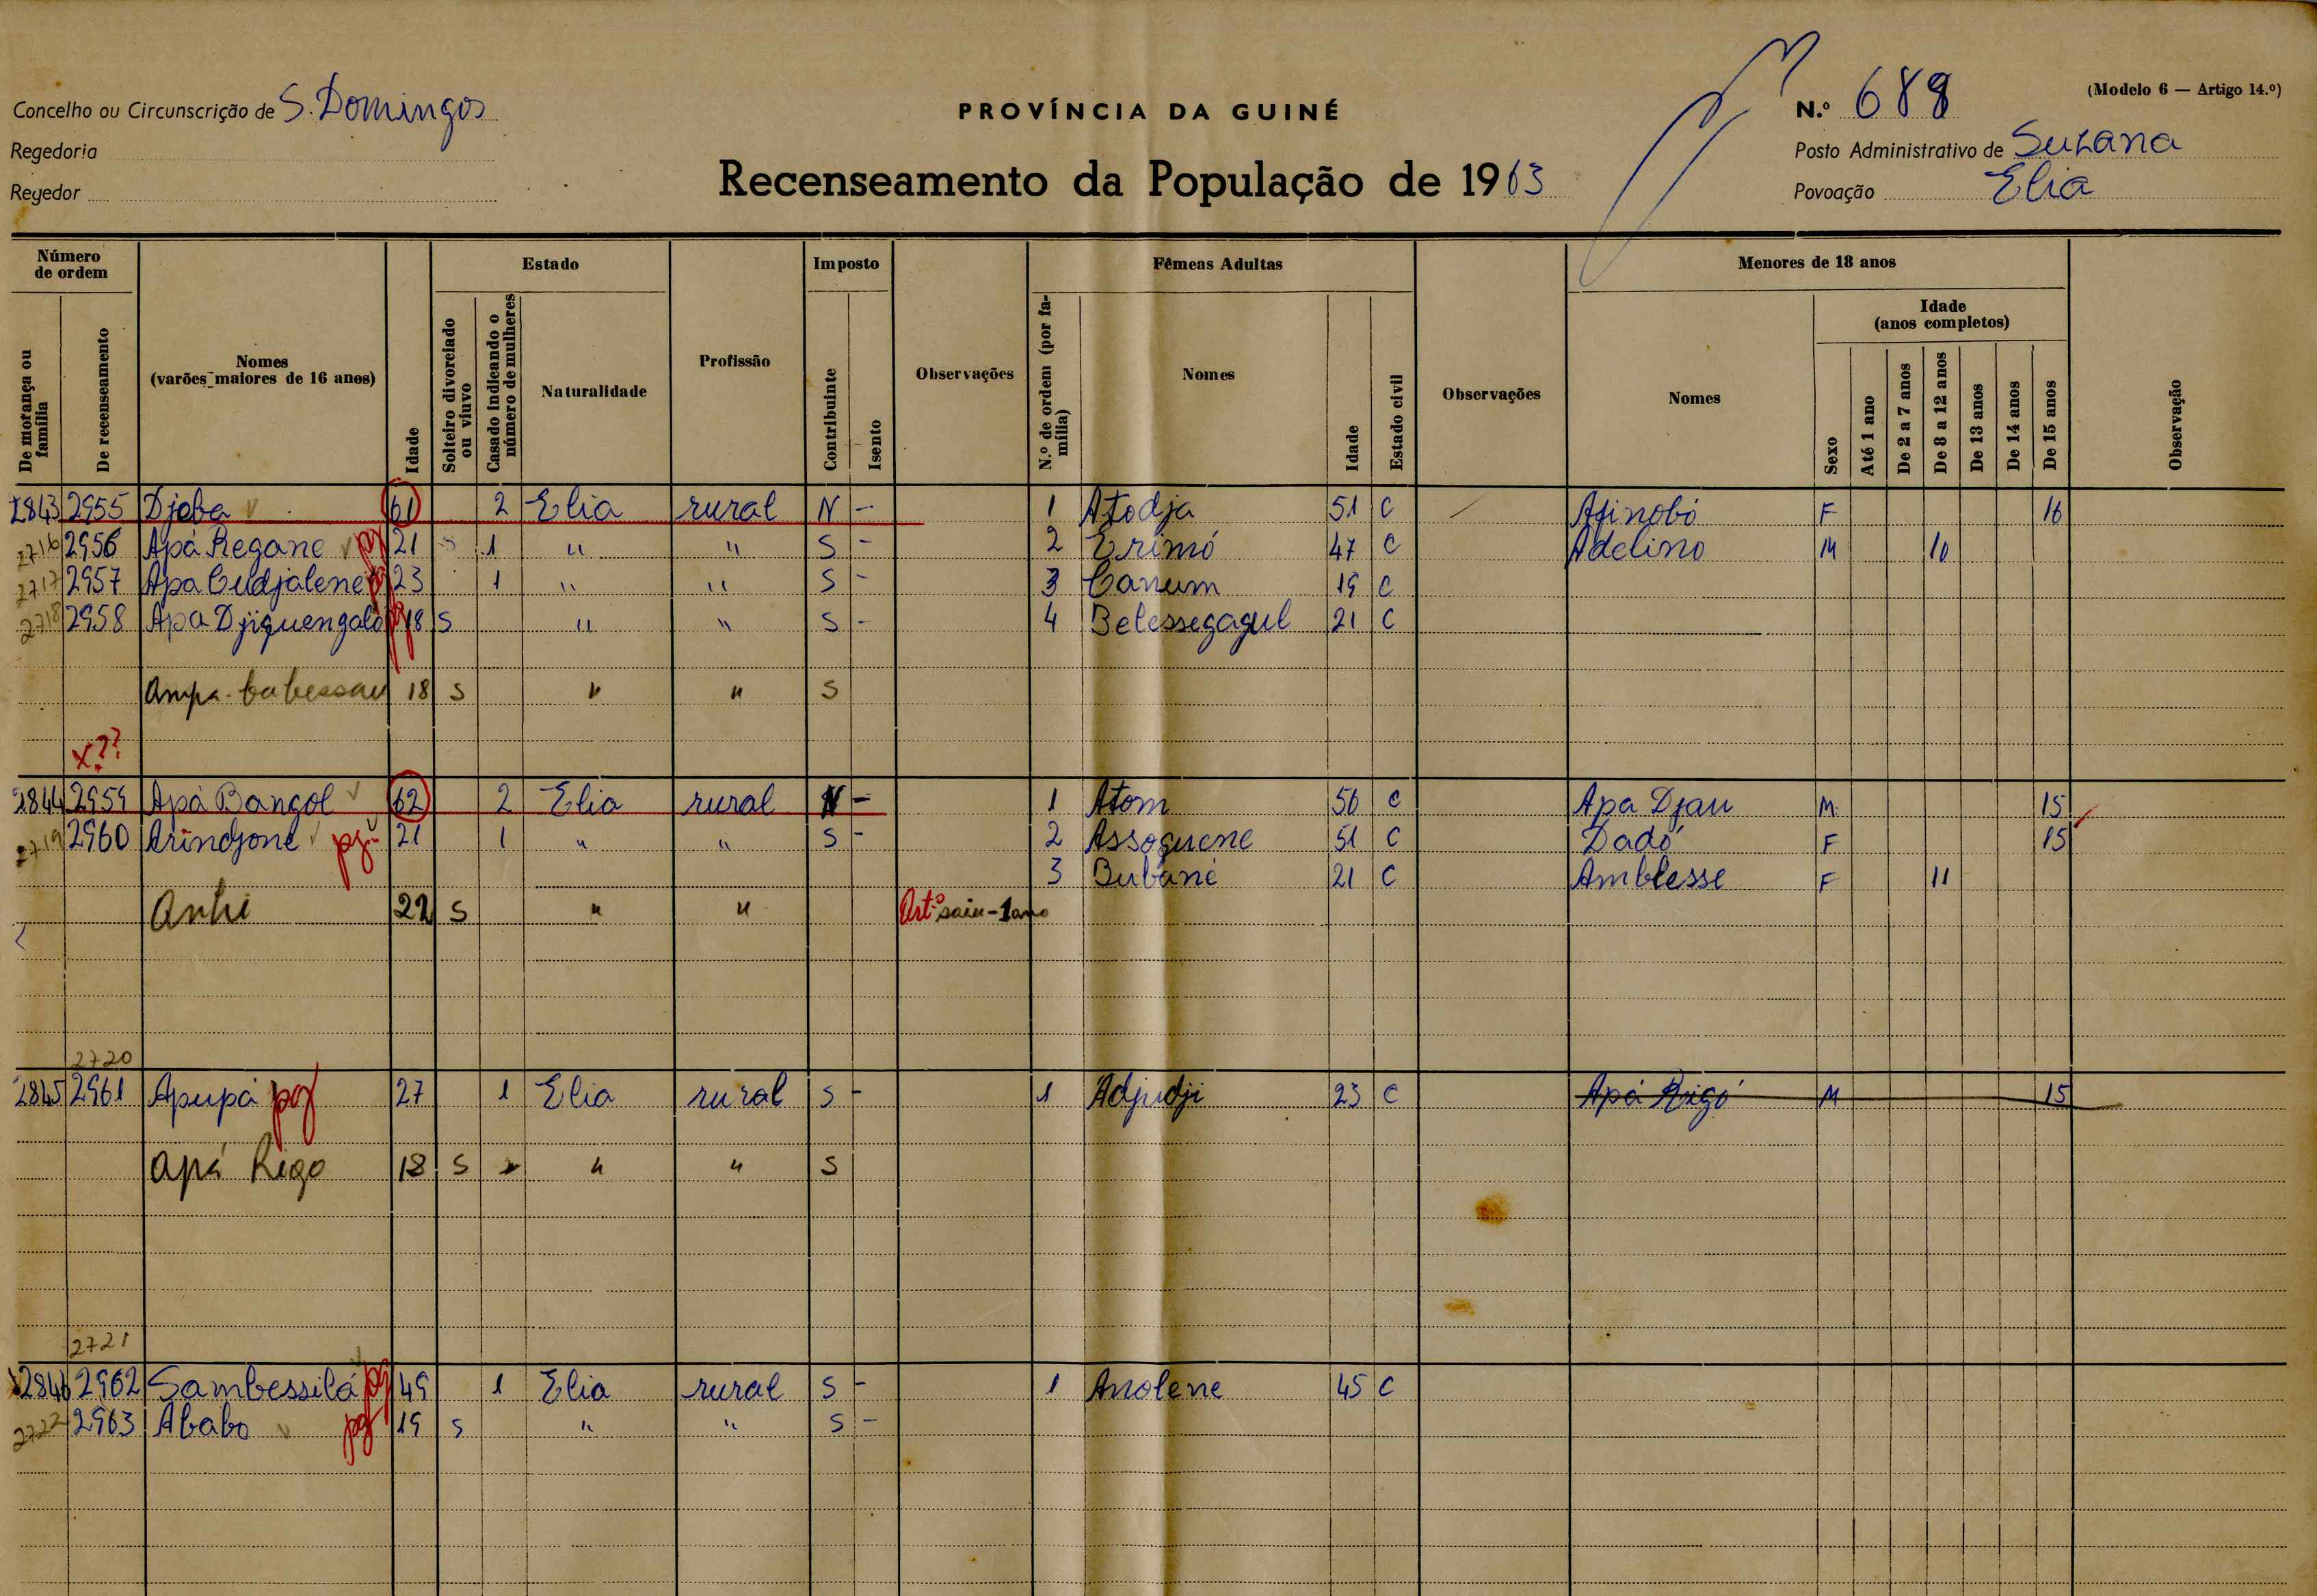 (Modelo 6 — Artigo 14.º)
Concelho ou Circunscrição de S. Domingos
PROVÍNCIA DA GUINÉ
N.º 688
Regedoria
Posto Administrativo de Suzana
Regedor
Recenseamento da População de 1963
Povoação Elia
Número de ordem
Estado
Imposto
Fêmeas Adultas
Menores de 18 anos
Idade (anos completos)
De morança ou família
De recenseamento
Nomes (varões maiores de 16 anos)
Idade
Solteiro divorciado ou viuvo
Casado indicando o número de mulheres
Naturalidade
Profissão
Contribuinte
Isento
Observações
N.º de ordem (por família)
Nomes
Idade
Estado civil
Observações
Nomes
Sexo
Até 1 ano
De 2 a 7 anos
De 8 a 12 anos
De 13 anos
De 14 anos
De 15 anos
Observação
2843 2955 Djoba 61 2 Elia rural N - 1 Atodja 51 C Afinobó F 16
2716 2956 Apá Regane pg 21 S 1 " " S - 2 Erimó 47 C Adelino M 10
2717 2957 Apa Cudjalene pg 23 1 " " S - 3 Canum 19 C
2718 2958 Apa Djiguengaló pg 18 S " " S - 4 Belessegagul 21 C
Ampa 18 S " " S
x??
2844 2959 Apá Bangol 62 2 Elia rural N - 1 Atom 56 C Apa Djau M 15
2719 2960 Arindjone pg 21 1 " " S - 2 Assoguene 51 C Dadó F 15
3 Bubane 21 C Amblesse F 11
Anhi 22 S " " Art.º saiu - 1 ano
2720
2845 2961 Apupá pg 27 1 Elia rural S - 1 Adjudji 23 C Apá Rigó M 15
Apá Rigo 18 S " " S
2721
2846 2962 Sambessilá pg 49 1 Elia rural S - 1 Anolene 45 C
2722 2963 Ababo pg 19 S " " S -